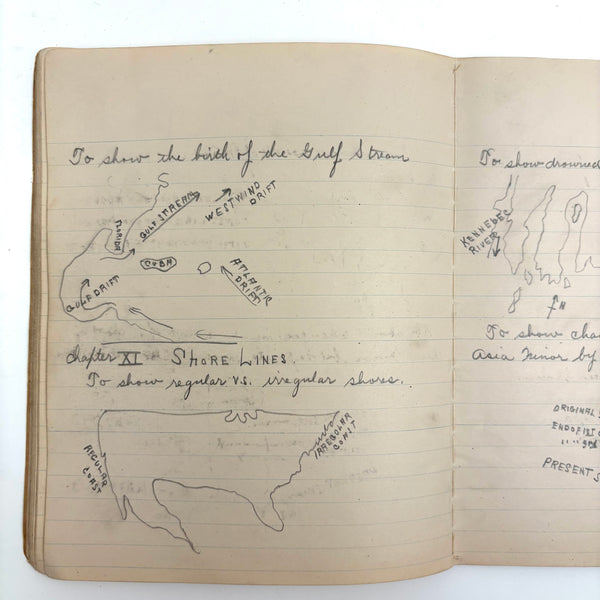 To show the birth of the Gulf Stream
WESTWIND
DRIFT
GULF STREAM
FLORIDA
CUBA
ATLANTIC
DRIFT
GULF DRIFT
Chapter XI SHORE LINES.
To show regular vs. irregular shores.
REGULAR
COAST
IRREGULAR
COAST
To show drowned
KENNEBEC
RIVER
To show cha
Asia Minor by
ORIGINAL
END OF 1ST
" " 3RD
PRESENT S